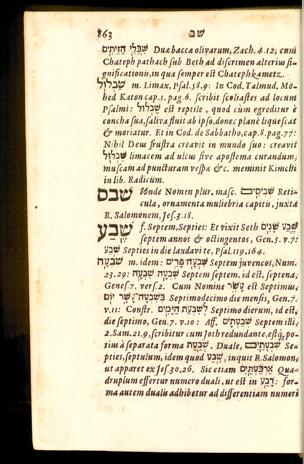 863 שב
שִׁבֲּלֵי הַזֵּיתִים Duæ baccæ olivarum, Zach. 4.12. cum
Chateph pathach sub Beth ad discrimen alterius si-
gnificationis, in qua semper est Chatephkametz.
שַׁבְּלוּל m. Limax, Psal. 58.9: In Cod. Talmud. Mo-
hed Katon cap. 1. pag. 6. scribit scoliastes ad locum
Psalmi: שבלול est reptile, quod cùm egreditur è
concha sua, saliva fluit ab ipso, donec planè liquescat
& moriatur. Et in Cod. de Sabbatho, cap. 8. pag. 77:
Nihil Deus frustra creavit in mundo suo: creavit
שבלול limacem ad ulcus sive apostema curandum,
muscam ad puncturam vespæ &c. meminit Kimchi
in lib. Radicum.
שבס Inde Nomen plur. masc. שְׁבִיסִים Reti-
cula, ornamenta muliebria capitis, juxta
R. Salomonem, Jes. 3.18.
שבע f. Septem, Septies: Et vixit Seth שֶׁבַע שָׁנִים
septem annos & octingentos, Gen. 5. v. 7:
שֶׁבַע Septies in die laudavi te, Psal. 119.164.
שִׁבְעָה m. idem: שִׁבְעָה פָרִים Septem juvencos, Num.
23.29: שִׁבְעָה שִׁבְעָה Septem septem, id est, septena,
Genes. 7. vers. 2. Cum Nomine עָשָׂר est
Septimodecimo die mensis, Gen. 7.
v. 11: Constr. לְשִׁבְעַת הַיָּמִים Septimo dierum, id est,
die septimo, Gen. 7. v. 10: Aff. שְׁבַעְתָּם Septem illi,
2. Sam. 21.9. scribitur cum Jod redundante, estq; po-
tius à separata forma שִׁבְעָה. Duale, שִׁבְעָתַיִם Se-
pties, septulum, idem quod שֶׁבַע, inquit R. Salomon,
ut apparet ex Jes. 30.26. Sic etiam אַרְבַּעְתַּיִם Qua-
druplum effertur numero duali, ut est in רבע: for-
ma autem dualis adhibetur ad differentiam numeri